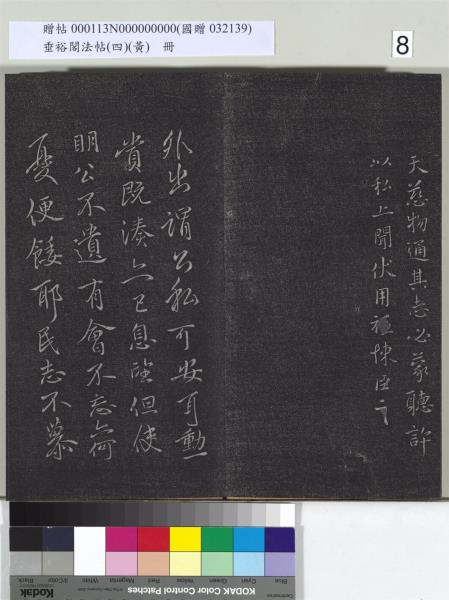 贈帖 000113N000000000(國贈 032139)
垂裕閣法帖(四)(黃) 冊
8
天慈物通其志必蒙聽許
以私上聞伏用 悚臣
外出謂公私可安耳勳
賞既湊 已息 但使
明公不遺有會不忘 荷
憂便餒耶民志不慕
Blue Cyan Green Yellow Red Magenta White 3/Color Black
KODAK Color Control Patches
Kodak